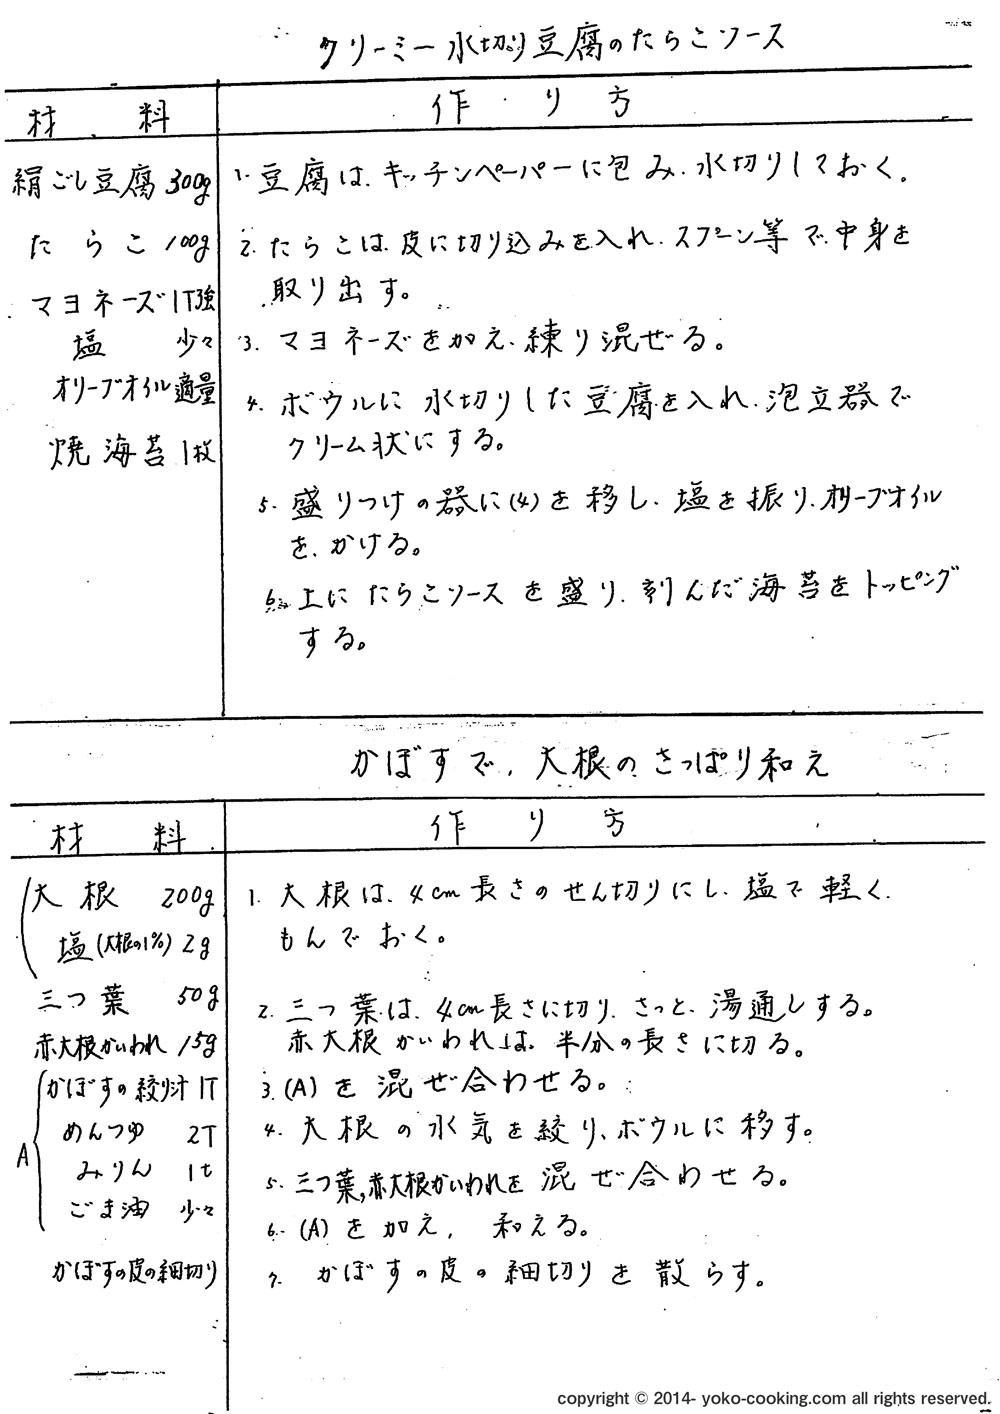 クリーミー水切り豆腐のたらこソース
材料
作り方
絹ごし豆腐 300g
たらこ 100g
マヨネーズ 1T強
塩 少々
オリーブオイル適量
焼海苔 1枚
1. 豆腐は、キッチンペーパーに包み、水切りしておく。
2. たらこは、皮に切り込みを入れ、スプーン等で、中身を
取り出す。
3. マヨネーズを加え、練り混ぜる。
4. ボウルに水切りした豆腐を入れ、泡立器で
クリーム状にする。
5. 盛りつけの器に(4)を移し、塩を振り、オリーブオイル
を、かける。
6. 上にたらこソースを盛り、刻んだ海苔をトッピング
する。
かぼすで、大根のさっぱり和え
材料
作り方
大根 200g
塩(大根の1%) 2g
三つ葉 50g
赤大根かいわれ 15g
A
かぼすの絞り汁 1T
めんつゆ 2T
みりん 1t
ごま油 少々
かぼすの皮の細切り
1. 大根は、4cm長さのせん切りにし、塩で軽く、
もんでおく。
2. 三つ葉は、4cm長さに切り、さっと、湯通しする。
赤大根かいわれは、半分の長さに切る。
3. (A)を混ぜ合わせる。
4. 大根の水気を絞り、ボウルに移す。
5. 三つ葉,赤大根かいわれを混ぜ合わせる。
6. (A)を加え, 和える。
7. かぼすの皮の細切りを散らす。
copyright © 2014- yoko-cooking.com all rights reserved.